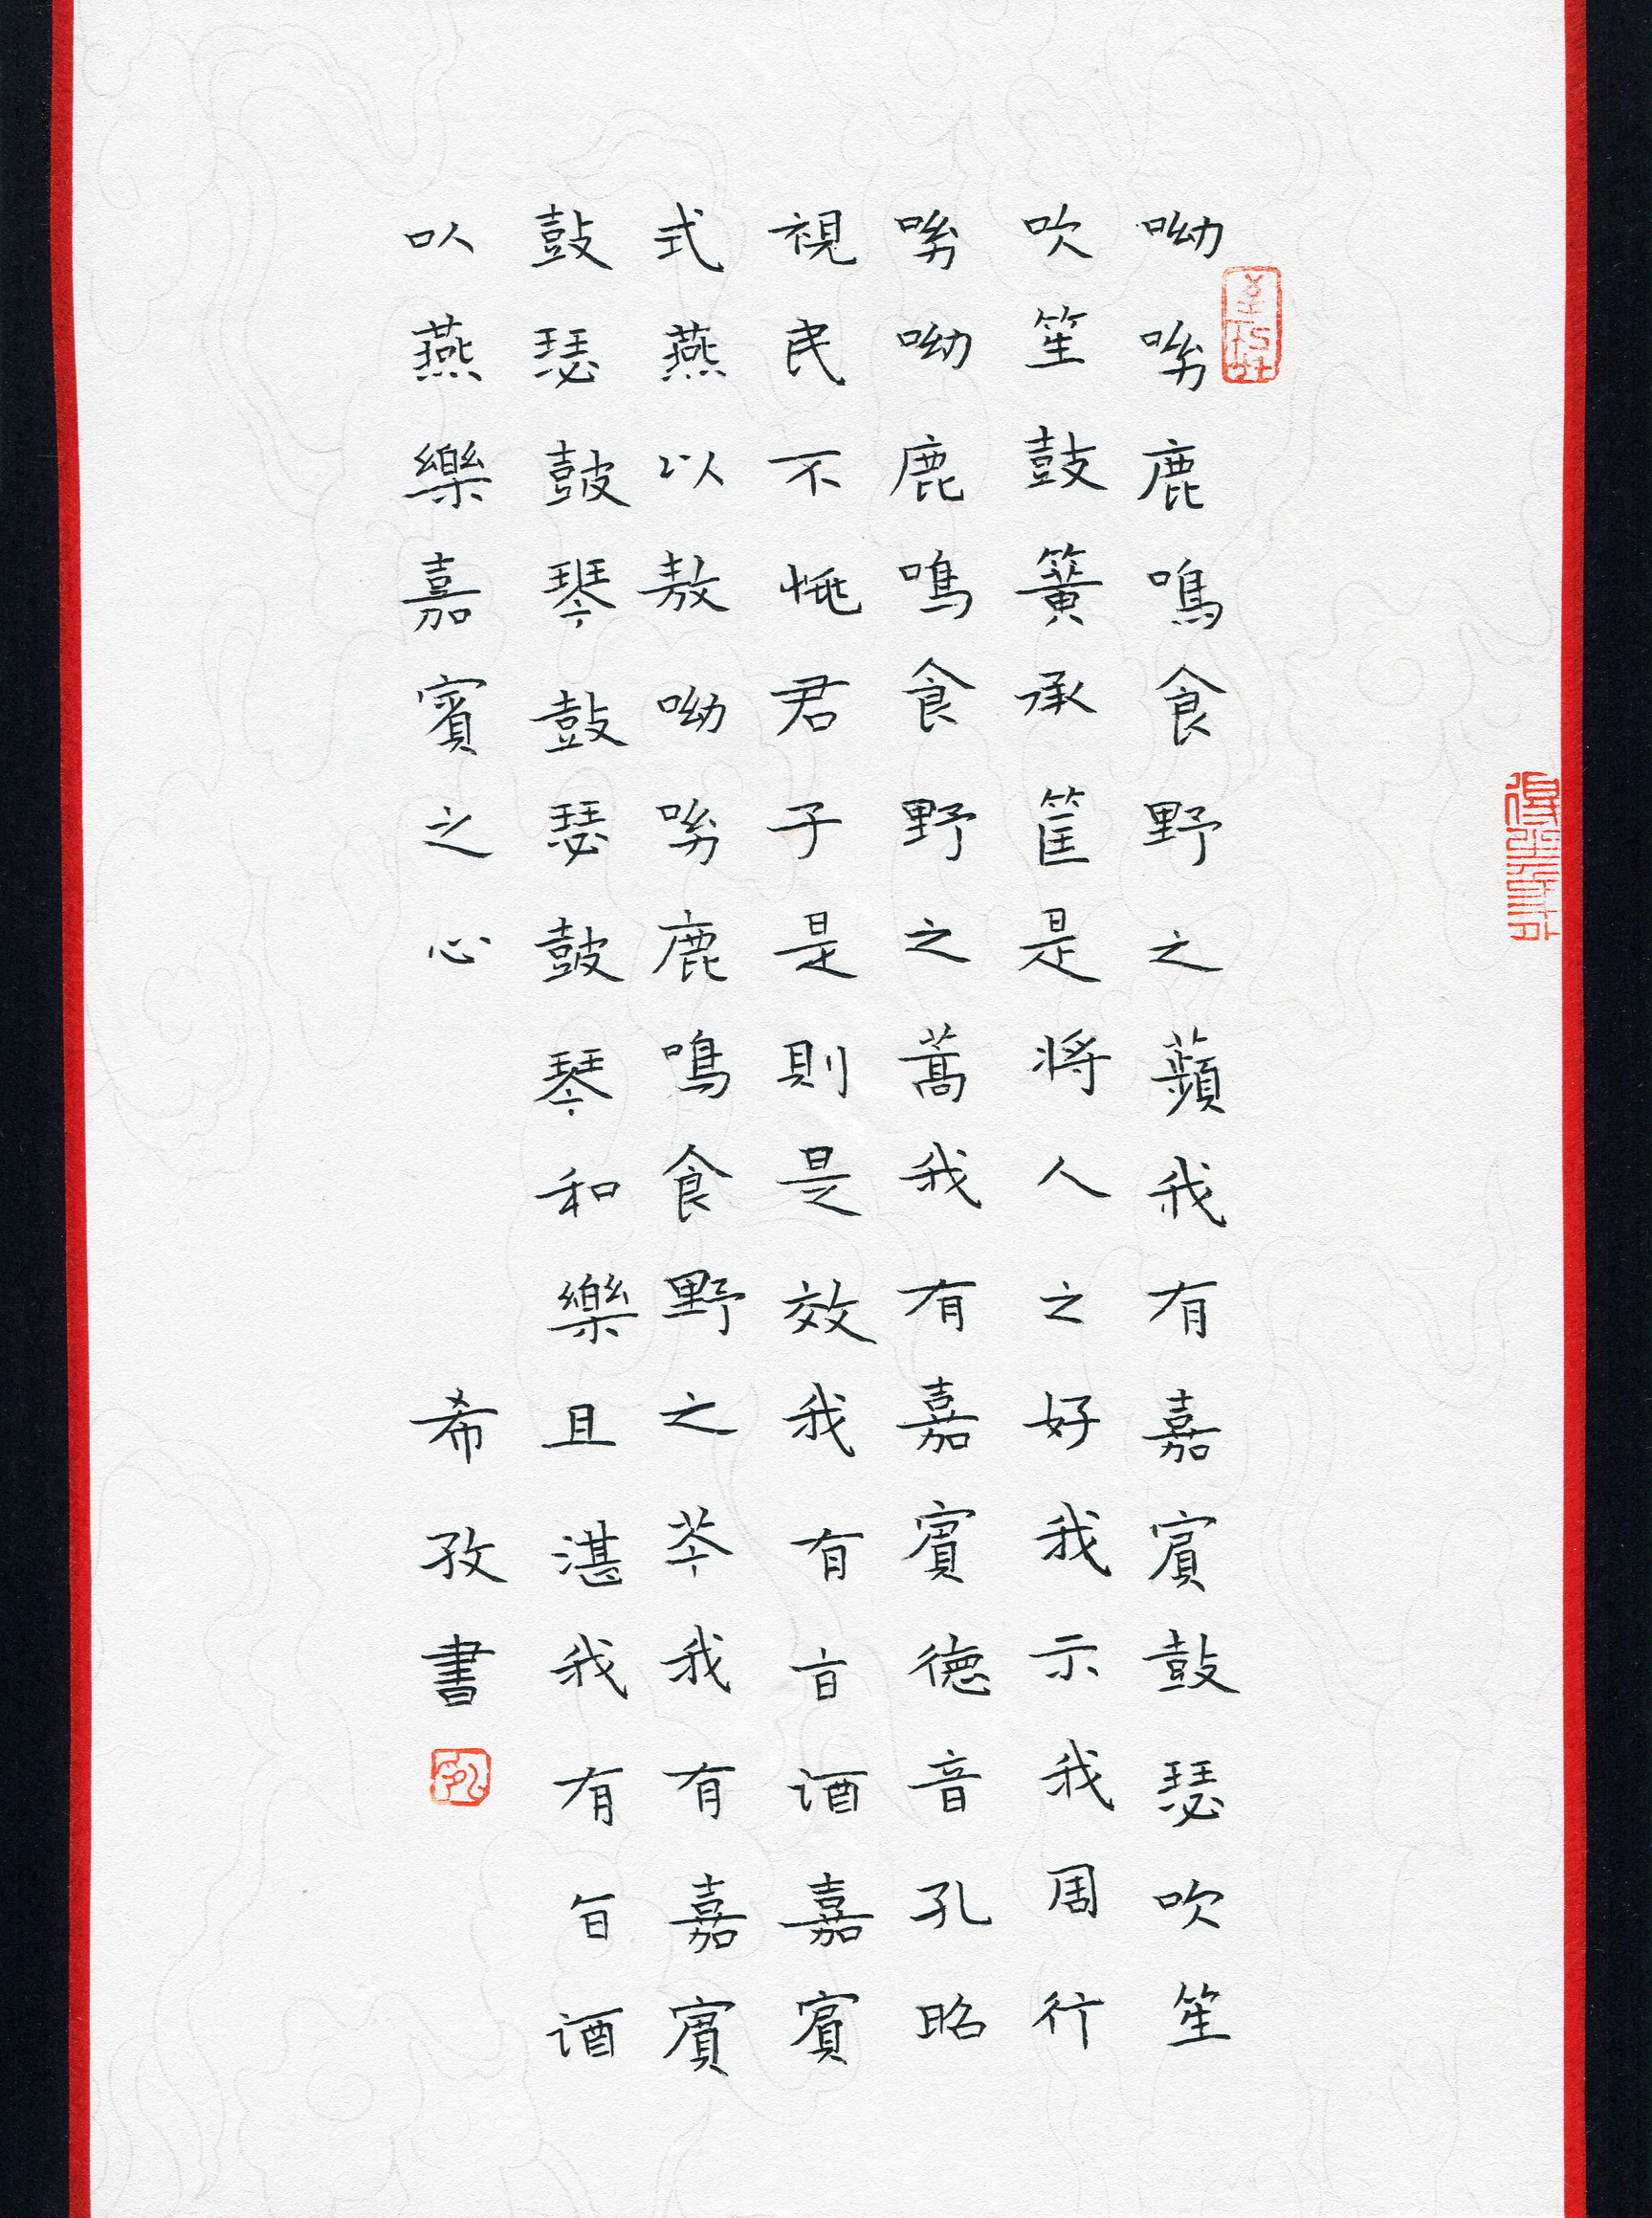 呦呦鹿鳴食野之蘋我有嘉賓鼓瑟吹笙
吹笙鼓簧承筐是將人之好我示我周行
呦呦鹿鳴食野之蒿我有嘉賓德音孔昭
視民不恌君子是則是效我有旨酒嘉賓
式燕以敖呦呦鹿鳴食野之芩我有嘉賓
鼓瑟鼓琴鼓瑟鼓琴和樂且湛我有旨酒
以燕樂嘉賓之心
希孜書